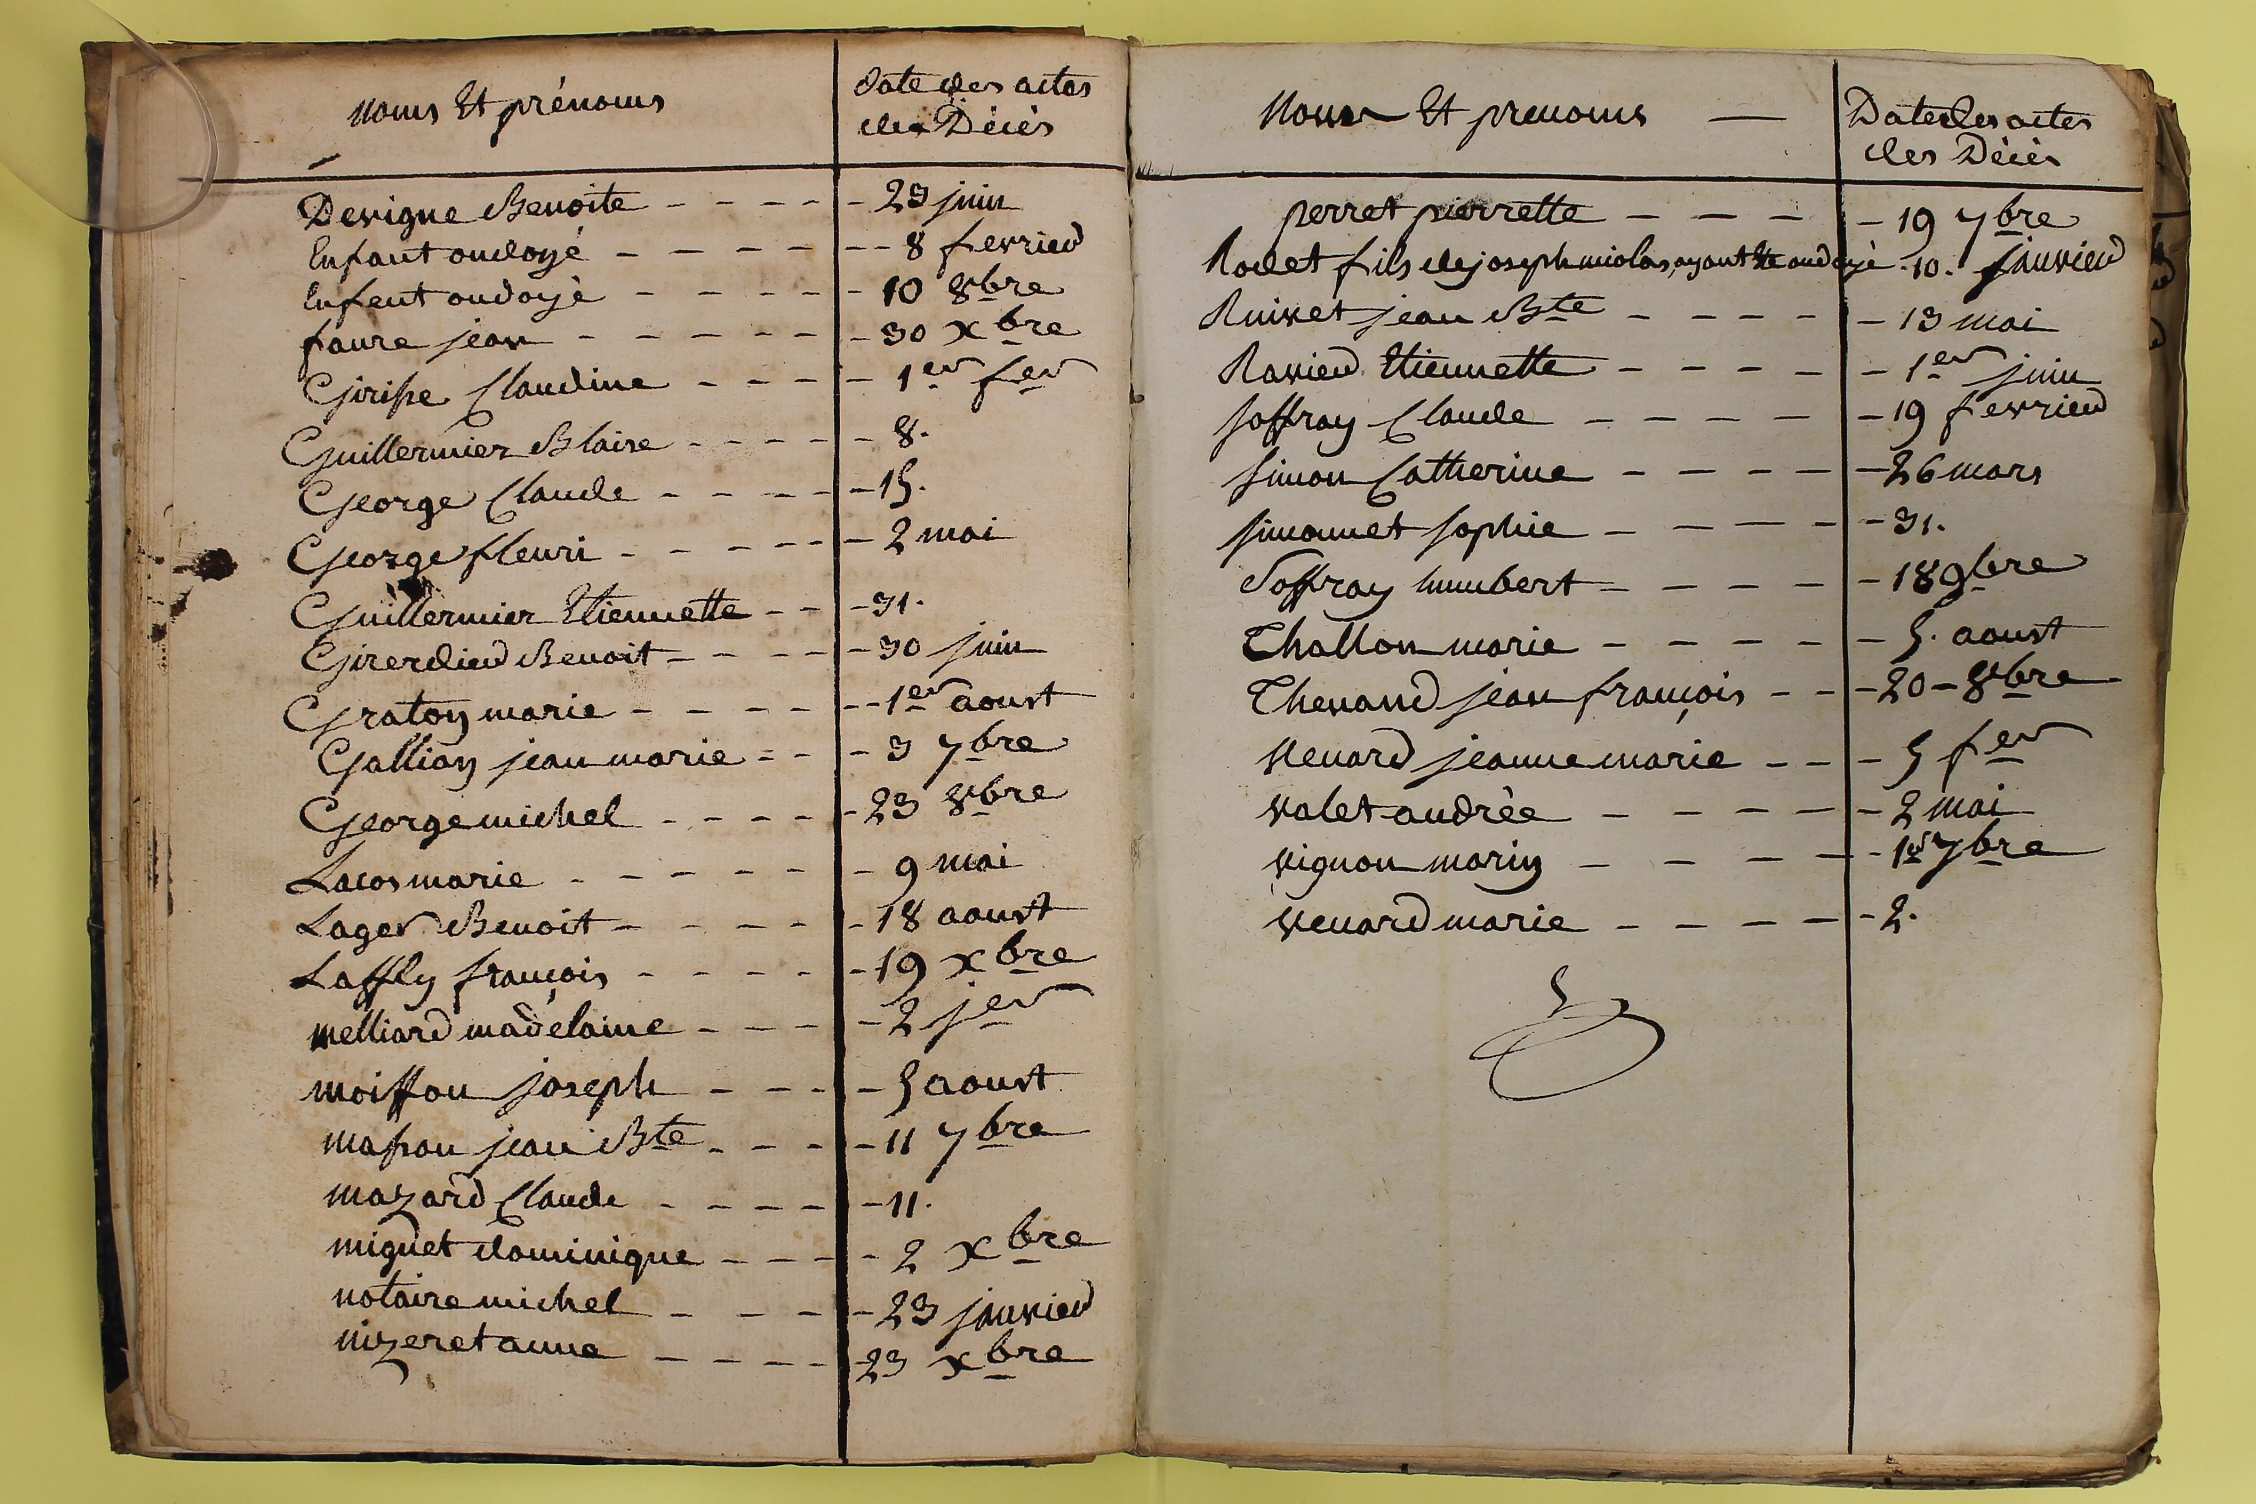 noms Et prénoms
Date des actes
des Décès
Devigne Benoite - - - - - 23 juin
Enfant ondoyé - - - - - - 8 fevrier
Enfent ondoyé - - - - - 10 8bre
faure jean - - - - - - 30 Xbre
Girisse Claudine - - - - 1er fer
Guillermier Blaise - - - - - 8.
George Claude - - - - - 15.
George fleuri - - - - - - 2 mai
Guillermier Etiennette - - - 31.
Girerdier Benoit - - - - - 30 juin
Graton marie - - - - - - 1er aoust
Gallion jean marie - - - 3 7bre
George michel - - - - - 23 8bre
Lacos marie - - - - - - 9 mai
Lager Benoit - - - - - 18 aoust
Laffly françois - - - - - 19 Xbre
melliard madelaine - - - - 2 jer
moiffon joseph - - - - 5 aoust
masson jean Bte - - - - 11 7bre
mazard Claude - - - - - 11.
miguet dominique - - - - 2 Xbre
notaire michel - - - - 23 janvier
nizeret anne - - - - - 23 Xbre
Noms Et prenoms —
Date des actes
des Décès
perret pierrette - - - - 19 7bre
Rodet fils de joseph nicolas, ayant Eté ondoyé - 10. janvier
Ruivet jean Bte - - - - - 13 mai
Ravier Etiennette - - - - - 1er juin
Joffray Claude - - - - - 19 fevrier
Simon Catherine - - - - - 26 mars
Simonnet Sophie - - - - - 31.
Soffray humbert - - - - - 18 9bre
Thollon marie - - - - - 5. aoust
Thevand jean françois - - - 20 - 8bre
Venard jeanne marie - - - 5 fer
Valet andrée - - - - - 2 mai
Vignon marin - - - - - 1er 7bre
Venard marie - - - - - 2.